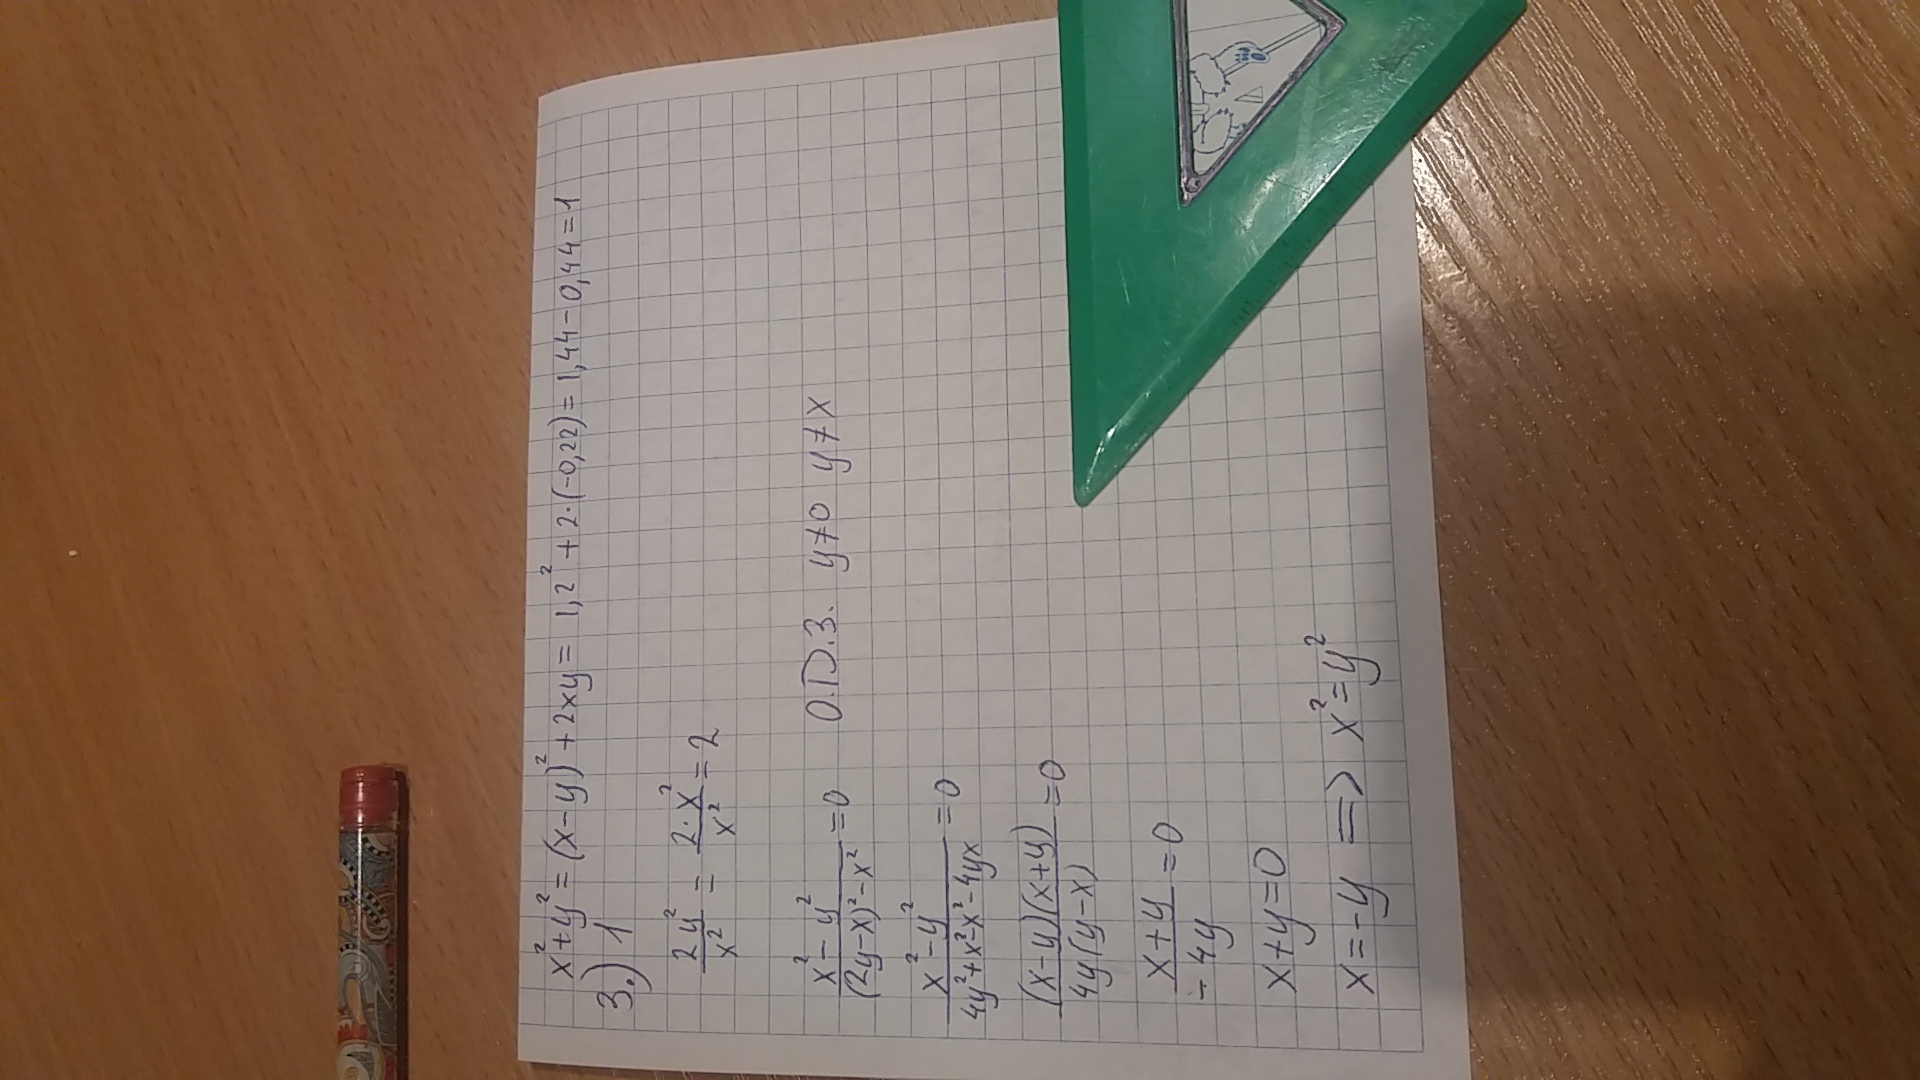 x²+y²=(x-y)²+2xy=1,2²+2·(-0,22)=1,44-0,44=1
3.) 1
2y²/x² = 2·x²/x² = 2
x²-y²/(2y-x)²-x² =0 О.Д.З. y≠0 y≠x
x²-y²/4y²+x²-x²-4yx =0
(x-y)(x+y)/4y(y-x) =0
x+y/-4y =0
x+y=0
x=-y => x²=y²